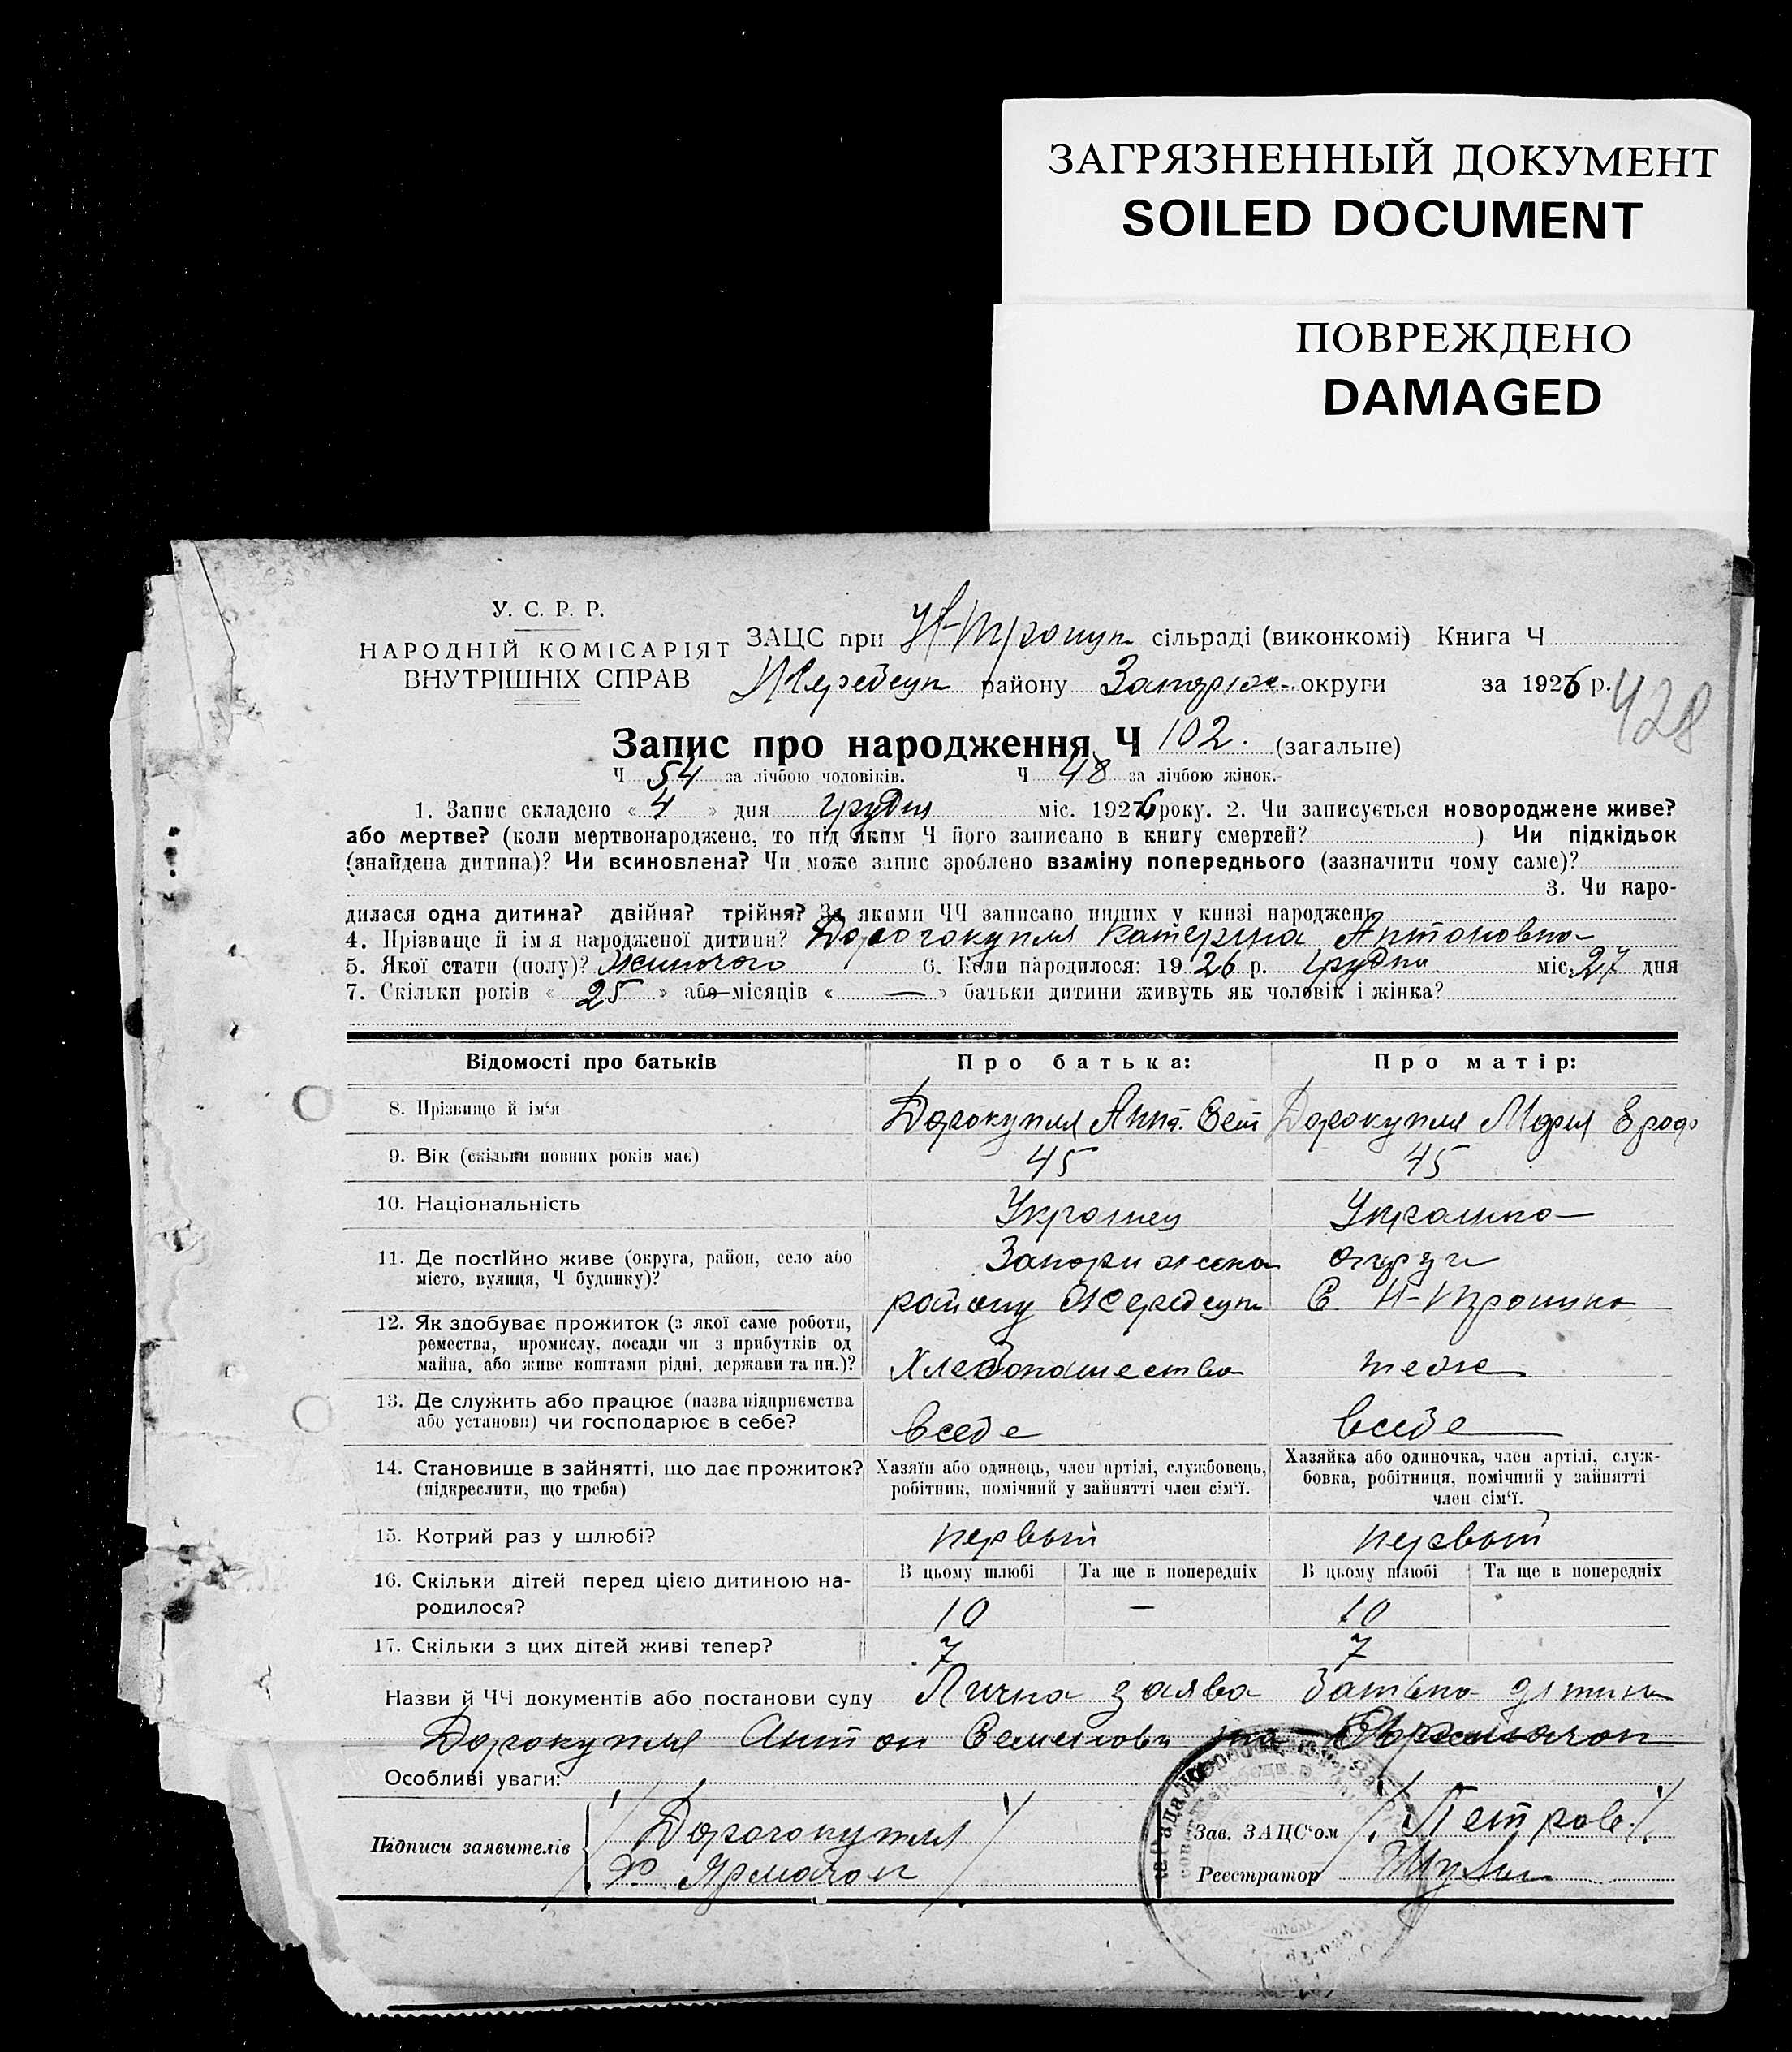 ЗАГРЯЗНЕННЫЙ ДОКУМЕНТ
SOILED DOCUMENT
ПОВРЕЖДЕНО
DAMAGED
У. С. Р. Р.
НАРОДНІЙ КОМІСАРІЯТ
ВНУТРІШНІХ СПРАВ
ЗАЦС при сільраді (виконкомі) Книга Ч
району округи за 1926 р.
428
Запис про народження Ч 102. (загальне)
Ч 54 за лічбою чоловіків. Ч 48 за лічбою жінок.
1. Запис складено « 4 » дня грудня міс. 1926 року. 2. Чи записується новороджене живе?
або мертве? (коли мертвонароджене, то під яким Ч його записано в книгу смертей? ) Чи підкідьок
(знайдена дитина)? Чи всиновлена? Чи може запис зроблено взаміну попереднього (зазначити чому саме)?
3. Чи наро-
дилася одна дитина? двійня? трійня? За якими ЧЧ записано инших у книзі народжень
4. Прізвище й ім'я народженої дитини? Дорогокупля Катерина Антоновна
5. Якої стати (полу)? Жиночого 6. Коли народилося: 1926 р. грудня міс. 27 дня
7. Скільки років « 25 » або місяців « — » батьки дитини живуть як чоловік і жінка?
Відомості про батьків Про батька: Про матір:
8. Прізвище й ім'я Дорокупля Ант. Сем Дорокупля Мария
9. Вік (скільки повних років має) 45 45
10. Національність Украинец Украинка
11. Де постійно живе (округа, район, село або
місто, вулиця, Ч будинку)?
округи
12. Як здобуває прожиток (з якої саме роботи,
ремества, промислу, посади чи з прибутків од
майна, або живе коштами рідні, держави та ин.)?
Хлебопашество тоже
13. Де служить або працює (назва підприємства
або установи) чи господарює в себе?
всебе всебе
14. Становище в зайнятті, що дає прожиток?
(підкреслити, що треба)
Хазяїн або одинець, член артілі, службовець,
робітник, помічний у зайнятті член сім'ї.
Хазяйка або одиночка, член артілі, служ-
бовка, робітниця, помічний у зайнятті
член сім'ї.
15. Котрий раз у шлюбі? первый первый
16. Скільки дітей перед цією дитиною на-
родилося?
В цьому шлюбі Та ще в попередніх В цьому шлюбі Та ще в попередніх
10 — 10
17. Скільки з цих дітей живі тепер? 7 7
Назви й ЧЧ документів або постанови суду Лична заява батька дитини
Дорокупля Антон
Особливі уваги:
Підписи заявителів Дорогокупля
Ярмачок
Зав. ЗАЦС'ом Петров
Реестратор